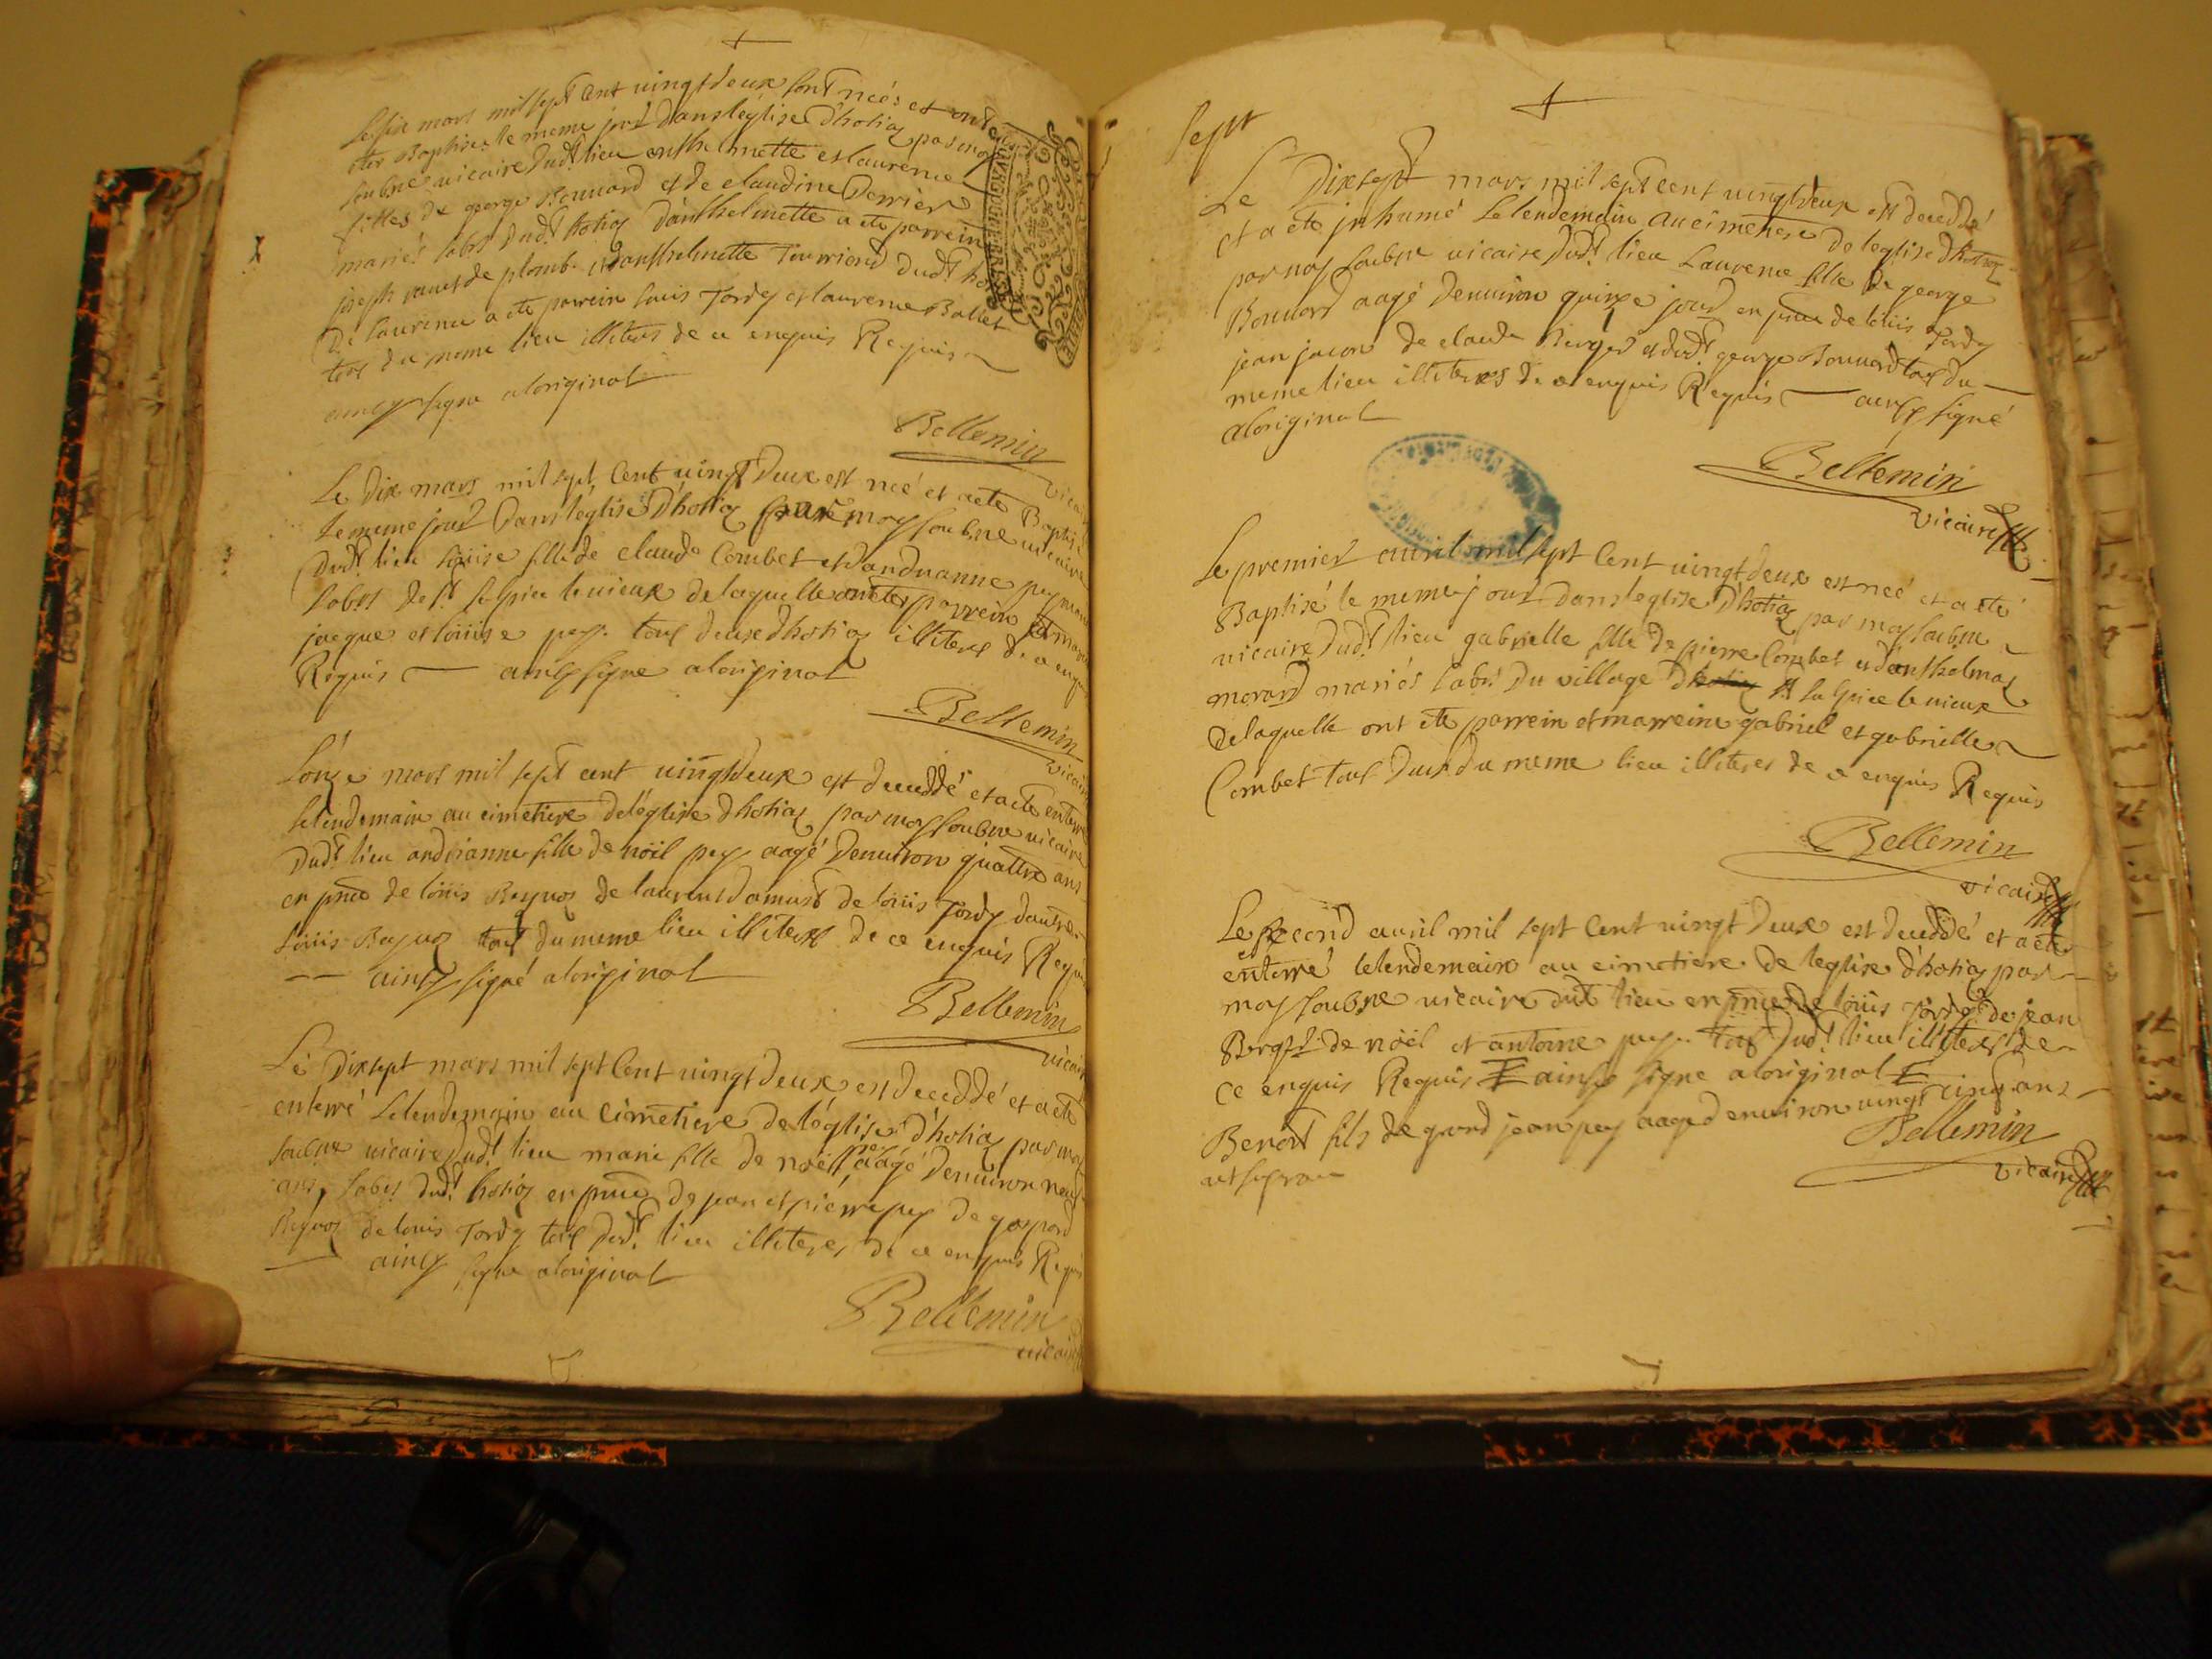 Le six mars mil sept cent vingt deux sont neés et ont
eter Baptisez le meme jour dans léglise d'hotiaz par moy
soubne vicaire dudt lieu anthelmette et laurence
filles de george Bonnard et de claudine Perrier
mariés labrs dudt hotiaz d'anthelmette a ete parrein
joseph de plomb et danthelmette dudt
De laurence a ete parrein louis Tordy et laurence Ballet
tous du meme lieu illiteres de ce enquis Requis
aincy signe aloriginal
Bellemin
vicaire
Le dix mars mil sept Cent vingt deux est neé et aete Baptisé
le meme jour Dans léglise D'hotiaz par moy soubne vicaire
Dudt lieu loüise fille de claude Combet et dandrianne pey mariés
labrs de St Sulpice le vieux delaquelle ont ete parrein et mar
jacque et loüise pey tous deux d'hotiaz illiteres de ce enquis
Requis — aincy signe aloriginal
Bellemin
vicaire
L'onze mars mil sept cent vingtdeux est deceddé et aete enterré
lelendemain au cimetiere deléglise dhotiaz par moy soubne vicaire
Dudt lieu andrianne fille de noël pey aagé Denuiron quattre ans
en pnce de loüis de laurent de loüis Tordy dautre
loüis tous dumeme lieu illiteres de ce enquis Requis
— aincy signé aloriginal
Bellemin
vicaire
Le Dixsept mars mil sept Cent vingt deux est deceddé et aete
enterré Lelendemain au cimetiere de léglise d'hotiaz par moy
soubne vicaire dudt lieu marie fille de noël pey aagé Denuiron neuf
ans labrs dudt hotiaz en pnce de jean et pierre pey de gaspard
de louis Tordy tous dudt lieu illiteres de ce enquis Requis
— aincy signe aloriginal
Bellemin
vicaire
sept
Le Dixsept mars mil sept cent vingtdeux est deceddé
et a ete jnhumé Lelendemain au cimetiere de leglise d'hotiaz
par moy soubne vicaire dudt lieu Laurence fille de george
Bonnard aagé Denuiron quinze jours en pnce de loüis Tordy
jean de claude Berger et dudt george Bonnard tous du
meme lieu illiteres de ce enquis Requis — aincy signé
aloriginal
Bellemin
vicaire
Le premier avril mil sept Cent vingtdeux est neé et a eté
Baptisé le meme jour Dans leglise D'hotiaz par moy soubne
vicaire Dudt lieu gabrielle fille de pierre Combet et danthelmaz
morand mariés labrs du village D'hotiaz St Sulpice le vieux
delaquelle ont ete parrein et marreine gabriel et gabrielle
Combet tous deux du meme lieu illiteres de ce enquis Requis
Bellemin
vicaire
Le second avril mil sept Cent vingt deux est deceddé et a ete
enterré lelendemain au cimetiere de leglise d'hotiaz par
moy soubne vicaire dudt lieu en pnce de loüis Tordy de jean
Berger de noël et antoine pey tous dudt lieu illiteres de
ce enquis Requis aincy signe aloriginal
Benoit fils de grand jean pey aagé denuiron vingt cinq ans
ut supra
Bellemin
vicaire